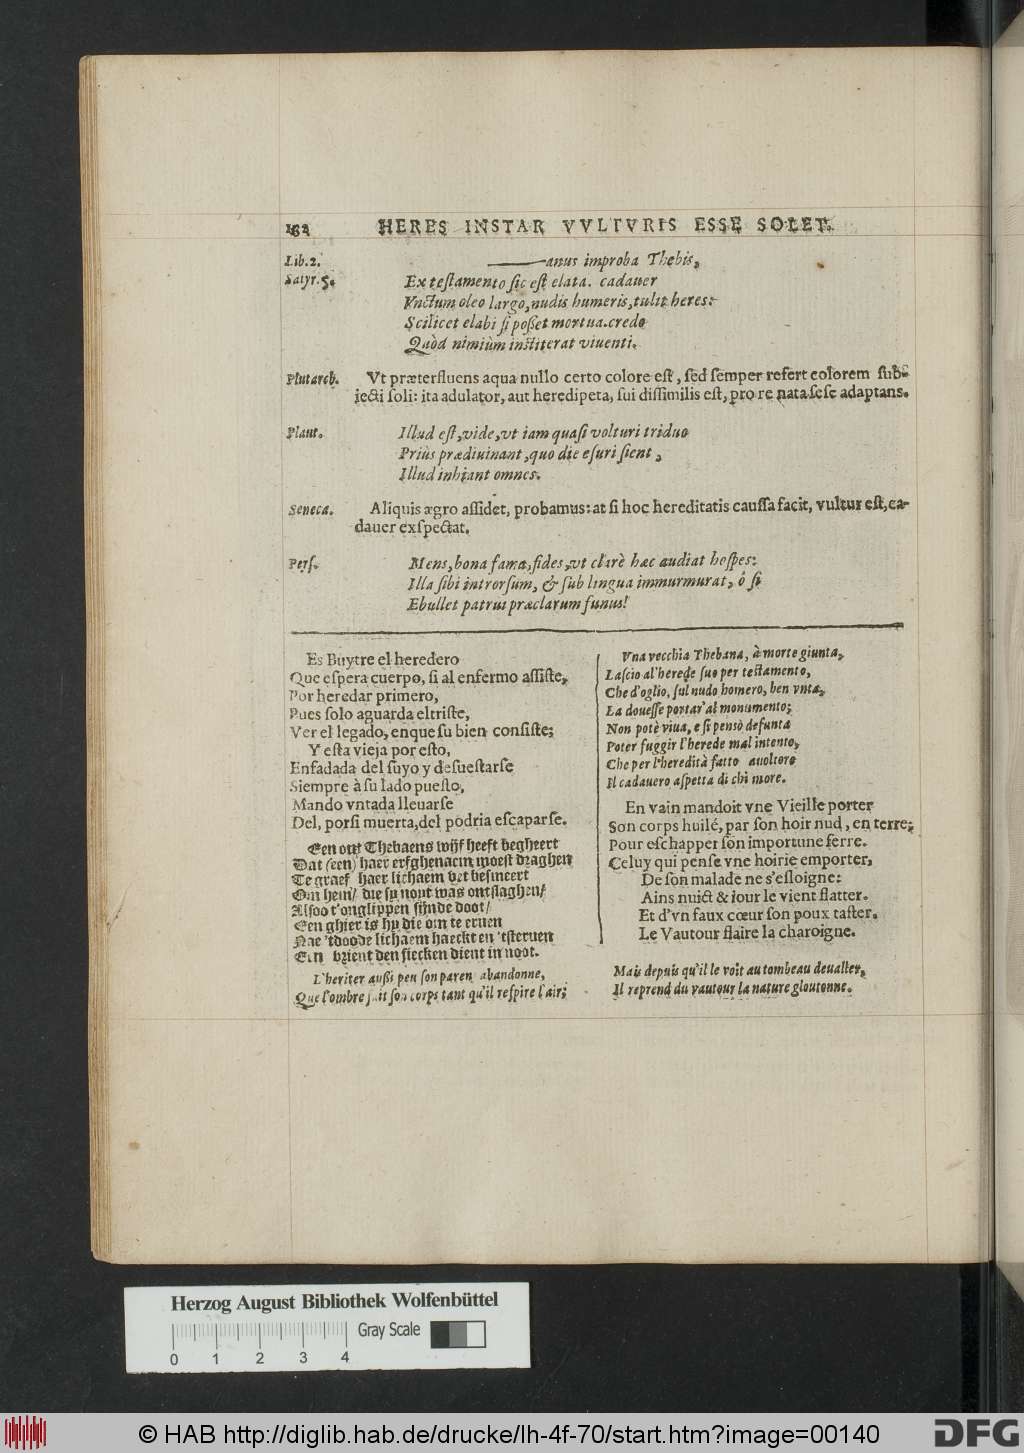 132 HERES INSTAR VVLTVRIS ESSE SOLET.
Lib.2. ———anus improba Thebis,
Satyr.5. Ex testamento sic est elata. cadauer
Vnctum oleo largo, nudis humeris, tulit heres:
Scilicet elabi si posset mortua. credo
Quòd nimiùm institerat viuenti.
Plutarch. Vt præterfluens aqua nullo certo colore est, sed semper refert colorem sub-
iecti soli: ita adulator, aut heredipeta, sui dissimilis est, pro re nata sese adaptans.
Plaut. Illud est, vide, vt iam quasi volturi triduo
Priùs prædiuinant, quo die esuri sient,
Illud inhiant omnes.
Seneca. Aliquis ægro assidet, probamus: at si hoc hereditatis caussa facit, vultur est, ca-
dauer exspectat.
Pers. Mens, bona fama, fides, vt clarè hæc audiat hospes:
Illa sibi introrsum, & sub lingua immurmurat, ô si
Ebullet patrui præclarum funus!
Es Buytre el heredero
Que espera cuerpo, si al enfermo assiste,
Por heredar primero,
Pues solo aguarda el triste,
Ver el legado, en que su bien consiste;
Y esta vieja por esto,
Enfadada del suyo y desuestarse
Siempre à su lado puesto,
Mando vntada lleuarse
Del, por si muerta, del podria escaparse.
Een out Thebaens wijf heeft begheert
Dat (een) haer erfghenaem moest draghen
Te graef haer lichaem vet besmeert
Om hem/ die sy noyt was ontslaghen/
Alsoo t'ontglippen sijnde doot/
Een ghier is hy die om te eruen
Nae 'tdoode lichaem haeckt en 'tsteruen
Ein vrient den siecken dient in noot.
L'heritier aussi peu son paren abandonne,
Que l'ombre suit son corps tant qu'il respire l'air;
Vna vecchia Thebana, à morte giunta,
Lascio al'herede suo per testamento,
Che d'oglio, sul nudo homero, ben vnta,
La douesse portar' al monumento;
Non potè viua, e si pensò defunta
Poter fuggir l'herede mal intento,
Che per l'heredità fatto auoltore
Il cadauero aspetta di chi more.
En vain mandoit vne Vieille porter
Son corps huilé, par son hoir nud, en terre;
Pour eschapper son importune serre.
Celuy qui pense vne hoirie emporter,
De son malade ne s'esloigne:
Ains nuict & iour le vient flatter.
Et d'vn faux cœur son poux taster.
Le Vautour flaire la charoigne.
Mais depuis qu'il le voit au tombeau deualler,
Il reprend du vautour la nature gloutonne.
Herzog August Bibliothek Wolfenbüttel
Gray Scale
0 1 2 3 4
© HAB http://diglib.hab.de/drucke/lh-4f-70/start.htm?image=00140
DFG